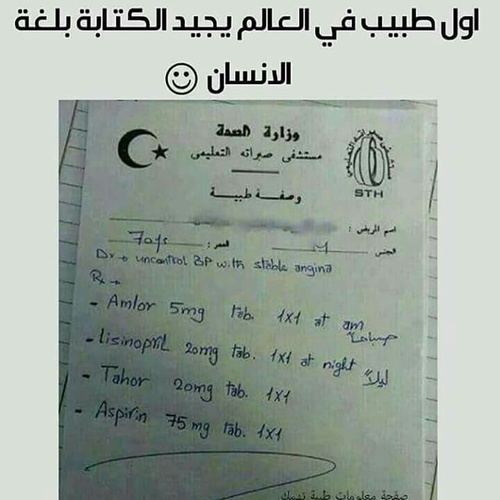 اول طبيب في العالم يجيد الكتابة بلغة
الانسان
وزارة الصحة
مستشفى صبراته التعليمي
STH
وصفة طبية
اسم المريض :
الجنس : M العمر : 70ys
Dx → uncontrol BP with stable angina
Rx →
- Amlor 5mg tab. 1x1 at am صباحاً
- Lisinopril 20mg tab. 1x1 at night ليلاً
- Tahor 20mg tab. 1x1
- Aspirin 75mg tab. 1x1
صفحة معلومات طبية تهمك